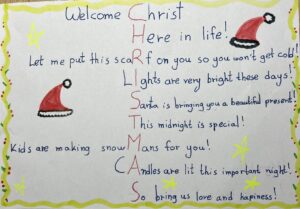 Welcome Christ
Here in life!
Let me put this scaRf on you so you won't get cold!
LIghts are very bright these days!
Santa is bringing you a beautiful present!
This midnight is special!
Kids are making snowMans for you!
CAndles are lit this important night!
So bring us love and hapiness!